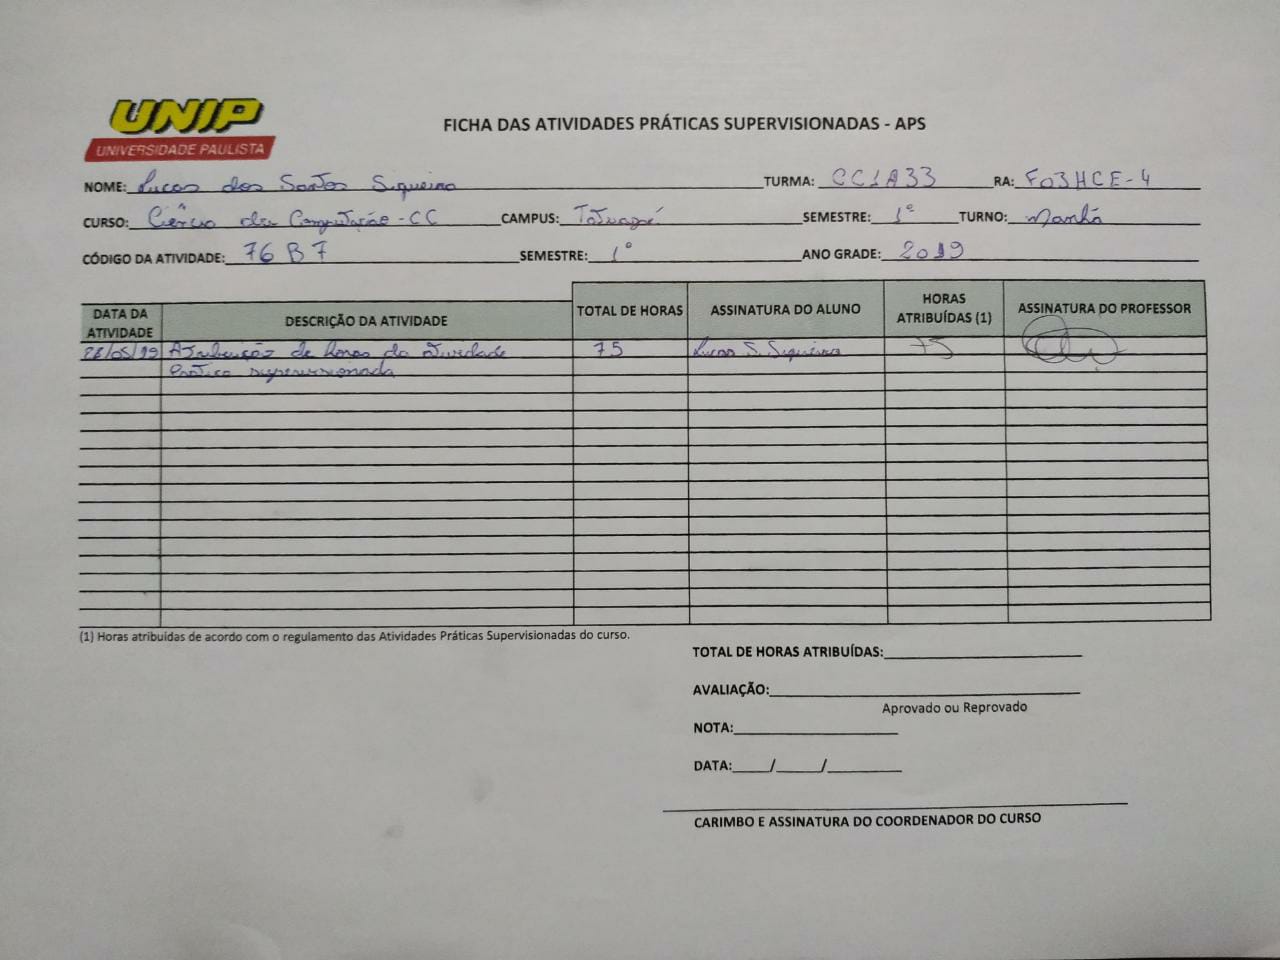 UNIP
UNIVERSIDADE PAULISTA
FICHA DAS ATIVIDADES PRÁTICAS SUPERVISIONADAS - APS
NOME: Lucas dos Santos Siqueira TURMA: CC1A33 RA: F03HCE-4
CURSO: Ciência da Computação - CC CAMPUS: Tatuapé SEMESTRE: 1º TURNO: Manhã
CÓDIGO DA ATIVIDADE: 76B7 SEMESTRE: 1º ANO GRADE: 2019
DATA DA ATIVIDADE DESCRIÇÃO DA ATIVIDADE TOTAL DE HORAS ASSINATURA DO ALUNO HORAS ATRIBUÍDAS (1) ASSINATURA DO PROFESSOR
/05/19 Atribuição de horas da atividade 75 Lucas S. Siqueira 75
Prática supervisionada
(1) Horas atribuídas de acordo com o regulamento das Atividades Práticas Supervisionadas do curso.
TOTAL DE HORAS ATRIBUÍDAS:
AVALIAÇÃO:
Aprovado ou Reprovado
NOTA:
DATA: / /
CARIMBO E ASSINATURA DO COORDENADOR DO CURSO